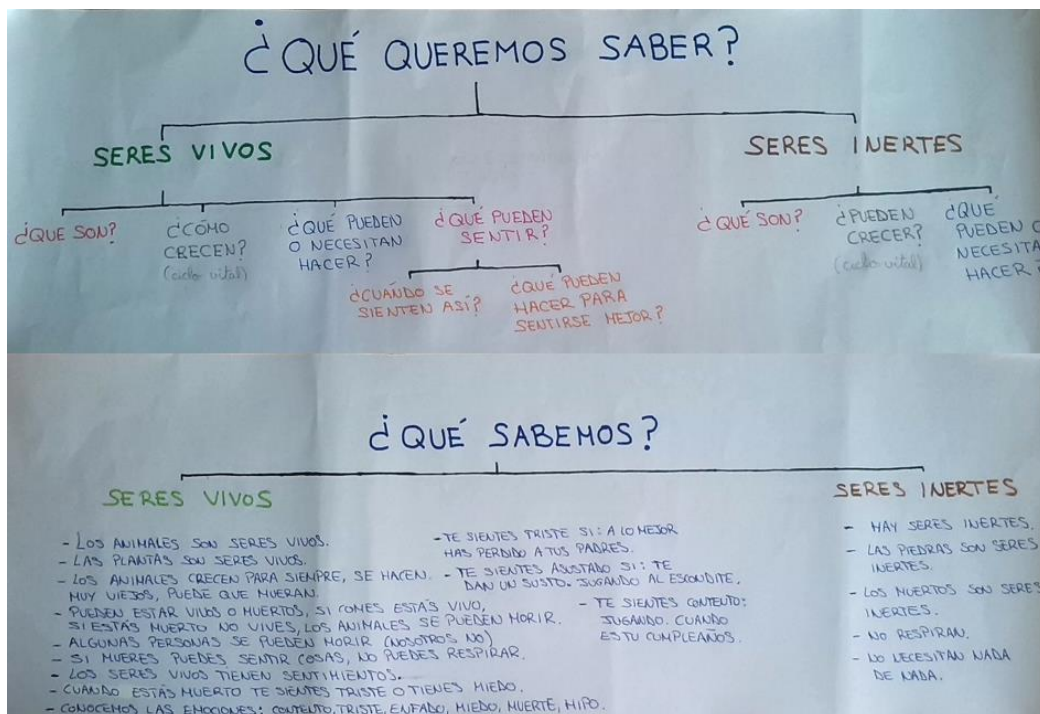 ¿QUÉ QUEREMOS SABER?
SERES VIVOS
SERES INERTES
¿QUE SON?
¿CÓMO
CRECEN?
(ciclo vital)
¿QUÉ PUEDEN
O NECESITAN
HACER?
¿QUÉ PUEDEN
SENTIR?
¿CUÁNDO SE
SIENTEN ASÍ?
¿QUÉ PUEDEN
HACER PARA
SENTIRSE MEJOR?
¿QUÉ SON?
¿PUEDEN
CRECER?
(ciclo vital)
¿QUÉ
PUEDEN O
NECESITA
HACER?
¿QUÉ SABEMOS?
SERES VIVOS
- LOS ANIMALES SON SERES VIVOS.
- LAS PLANTAS SON SERES VIVOS.
- LOS ANIMALES CRECEN PARA SIEMPRE, SE HACEN
MUY VIEJOS, PUEDE QUE MUERAN.
- PUEDEN ESTAR VIVOS O MUERTOS, SI COMES ESTÁS VIVO,
SI ESTÁS MUERTO NO VIVES, LOS ANIMALES SE PUEDEN MORIR.
- ALGUNAS PERSONAS SE PUEDEN MORIR (NOSOTROS NO)
- SI MUERES PUEDES SENTIR COSAS, NO PUEDES RESPIRAR.
- LOS SERES VIVOS TIENEN SENTIMIENTOS.
- CUANDO ESTÁS MUERTO TE SIENTES TRISTE O TIENES MIEDO.
- CONOCEMOS LAS EMOCIONES: CONTENTO, TRISTE, ENFADO, MIEDO, MUERTE, HIPO.
- TE SIENTES TRISTE SI: A LO MEJOR
HAS PERDIDO A TUS PADRES.
- TE SIENTES ASUSTADO SI: TE
DAN UN SUSTO. JUGANDO AL ESCONDITE.
- TE SIENTES CONTENTO:
JUGANDO. CUANDO
ES TU CUMPLEAÑOS.
SERES INERTES
- HAY SERES INERTES.
- LAS PIEDRAS SON SERES
INERTES.
- LOS MUERTOS SON SERES
INERTES.
- NO RESPIRAN.
- NO NECESITAN NADA
DE NADA.